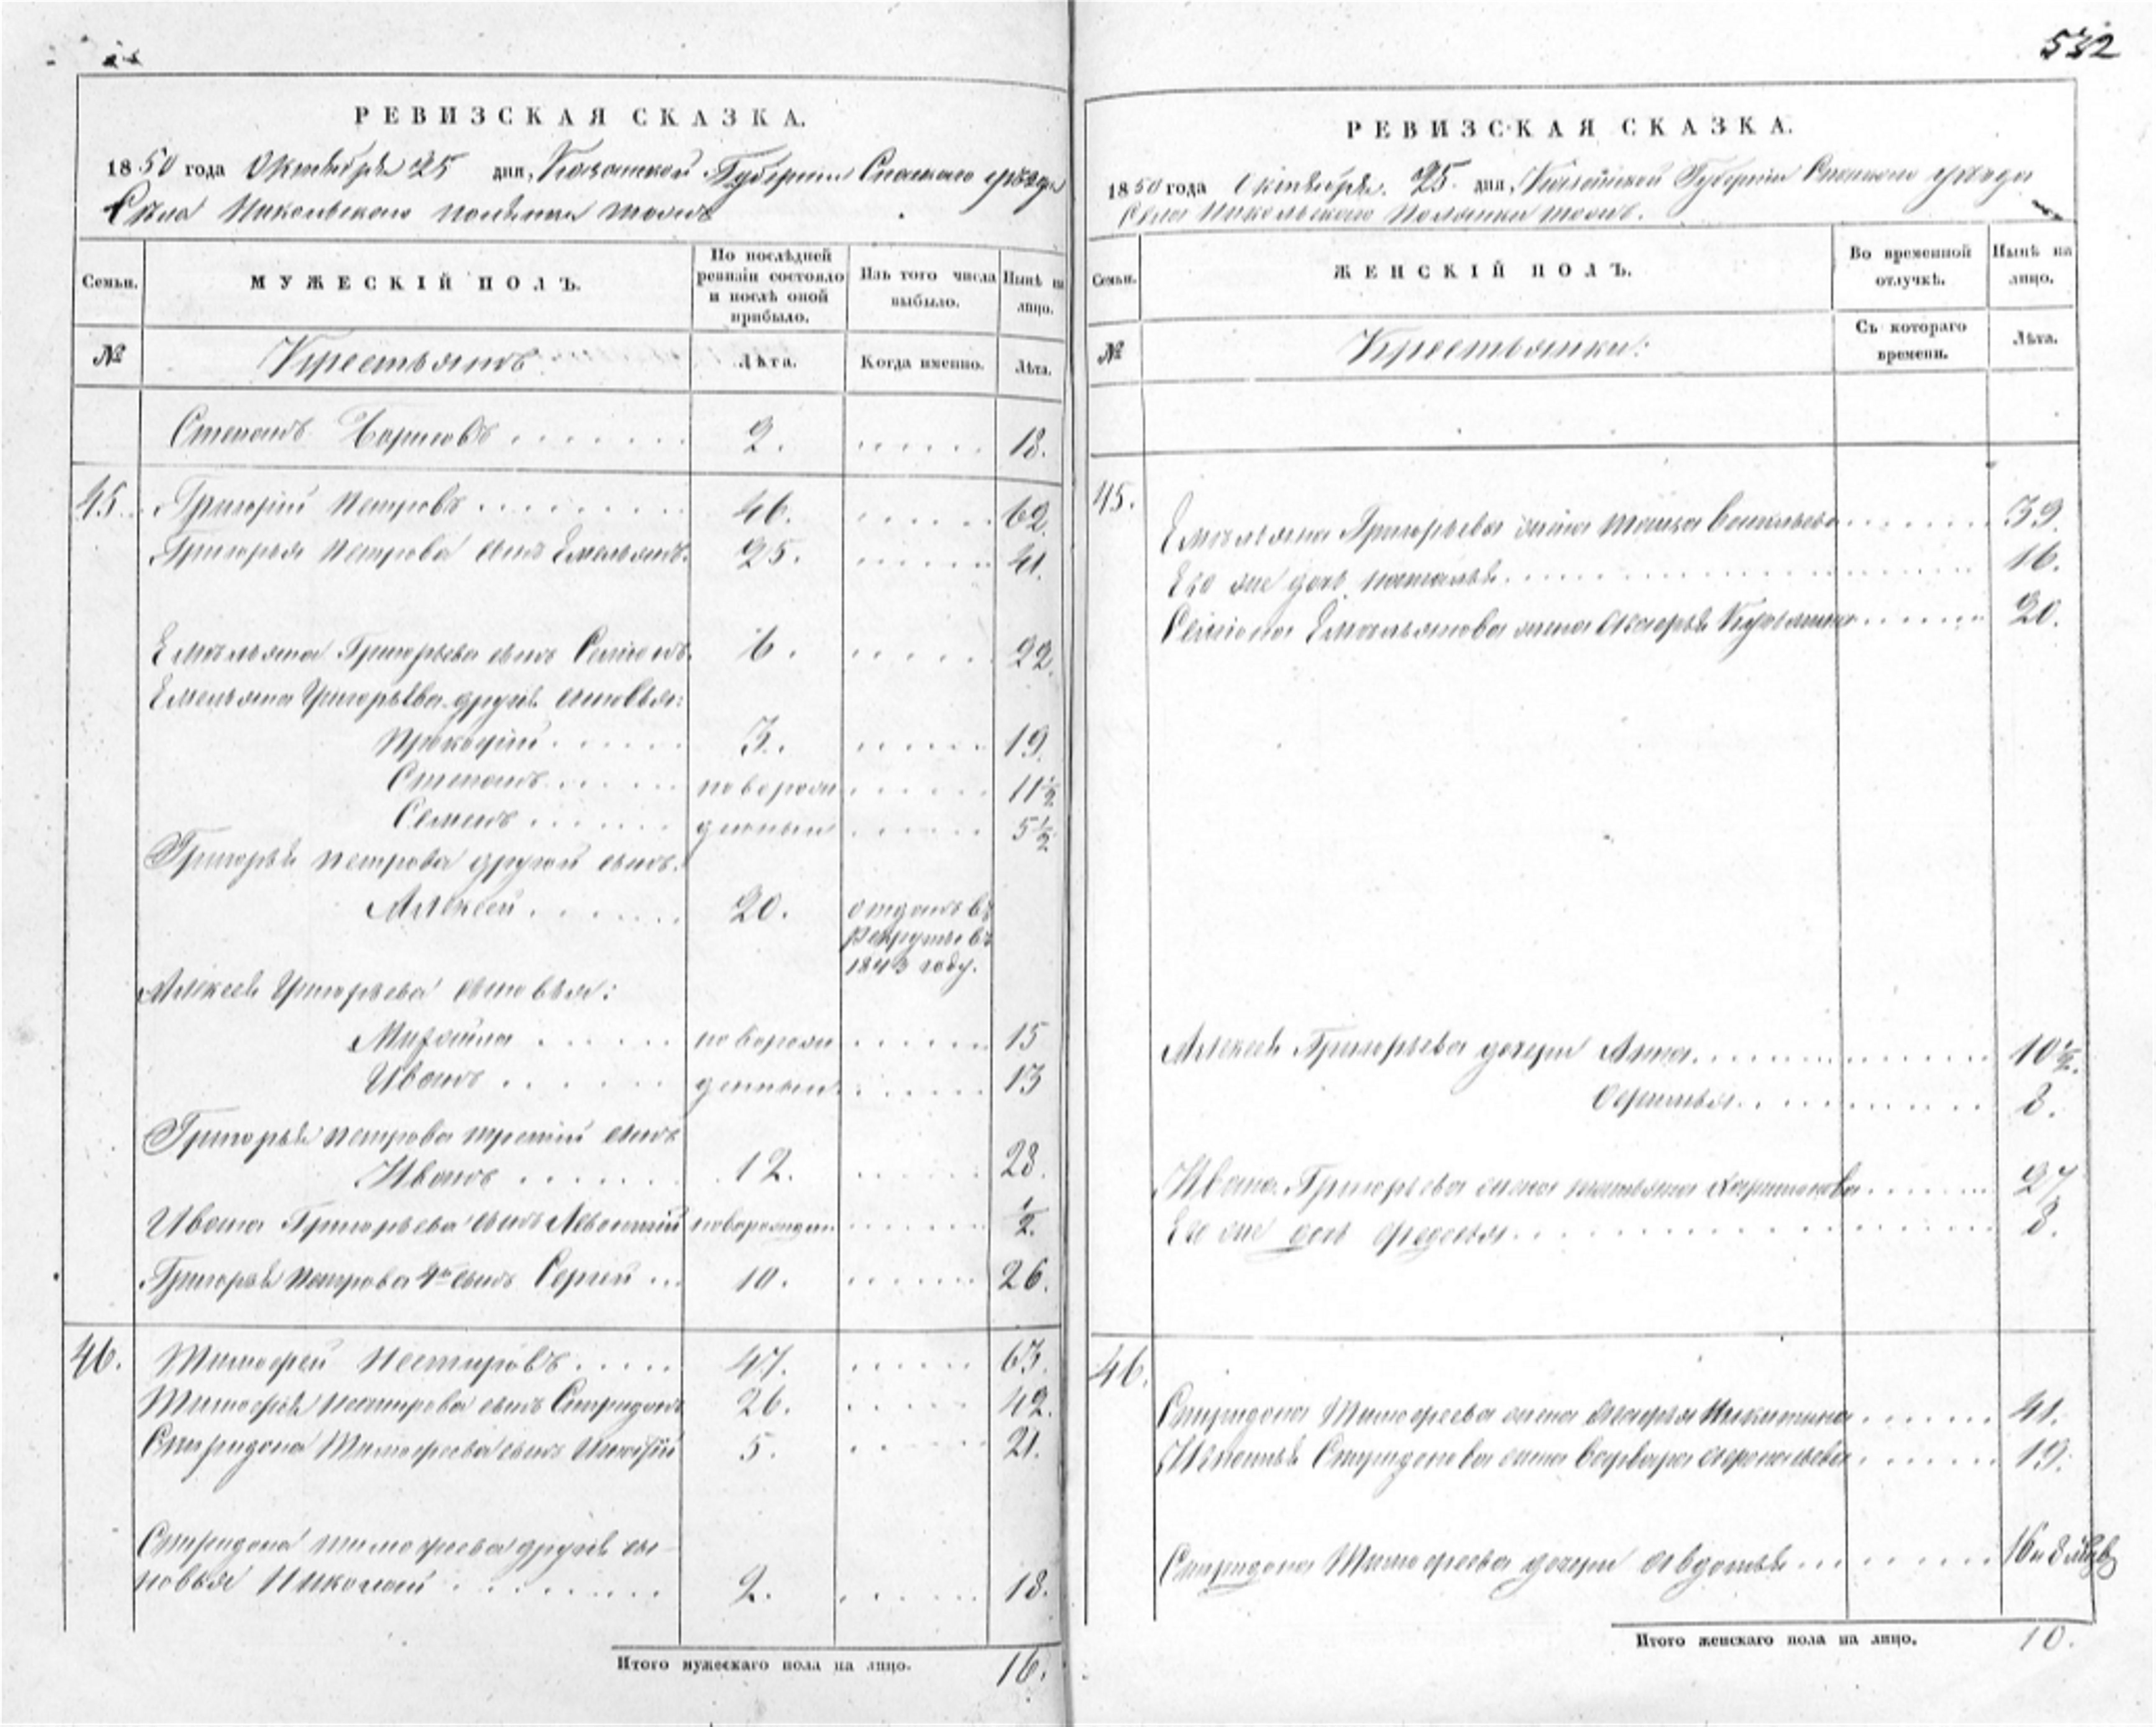 532
РЕВИЗСКАЯ СКАЗКА.
1850 года Октября 25 дня, Казанской Губернии Спасскаго уѣзда
Села Никольскаго
Семьи.
МУЖЕСКІЙ ПОЛЪ.
По послѣдней ревизіи состояло и послѣ оной прибыло.
Изъ того числа выбыло.
Нынѣ на лицо.
№
Крестьянъ
Лѣта.
Когда именно.
Лѣта.
Степанъ Борисовъ 2. 18.
45. Григорій Петровъ 46. 62.
Григорья Петрова сынъ Емельянъ. 25. 41.
Емельяна Григорьева сынъ Семіонъ. 6. 22.
Емельяна Григорьева другіе сыновья:
Прокофій 3. 19.
Степанъ новорож 11½
Семенъ денныи 5½
Григорья Петрова другой сынъ:
Алексей 20. отданъ въ
рекруты въ
1843 году.
Алексея Григорьева сыновья:
Михайла новорож 15
Иванъ денныи 13
Григорья Петрова третій сынъ
Иванъ 12. 28.
Ивана Григорьева сынъ Леонтій новорожден ½.
Григорья Петрова 4й сынъ Сергей 10. 26.
46. Тимофей 47. 63.
Тимофея сынъ Спиридонъ 26. 42.
Спиридона Тимофеева сынъ 5. 21.
Спиридона Тимофеева другіе сы-
новья Николай 2. 18.
Итого мужескаго пола на лицо. 16.
РЕВИЗСКАЯ СКАЗКА.
1850 года Октября. 25. дня, Казанской Губерніи Спасскаго уѣзда
Села Никольскаго
Семьи.
ЖЕНСКІЙ ПОЛЪ.
Во временной отлучкѣ.
Нынѣ на лицо.
№
Крестьянки:
Съ котораго времени.
Лѣта.
45.
Емельяна Григорьева жена Васильева 39.
Его же дочь Наталья 16.
Семіона Емельянова жена 20.
Алексея Григорьева дочери Анна 10½.
8.
Ивана Григорьева жена Татьяна Харитонова 27
Ее же дочь Федосья 8.
46.
Спиридона Тимофеева жена Агафья Никитина 41.
Спиридонова жена Варвара 19.
Спиридона Тимофеева дочери Авдотья 16 и 8
Итого женскаго пола на лицо. 10.